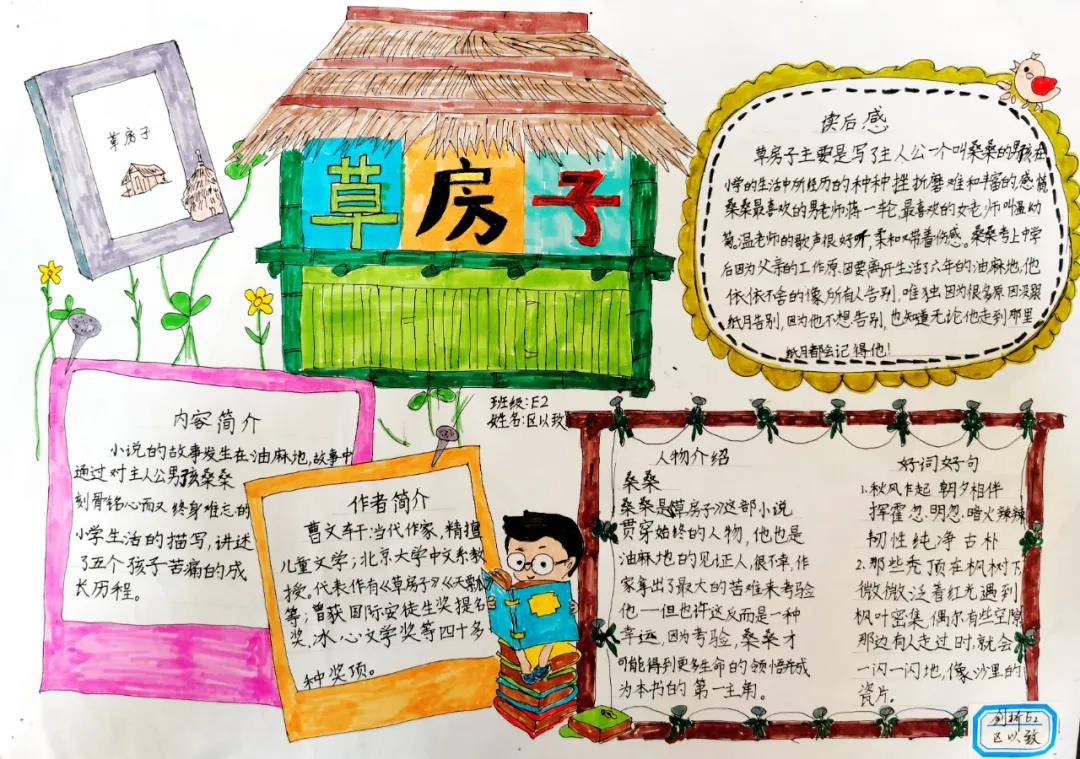 草房子
草房子
读后感
草房子主要是写了主人公一个叫桑桑的男孩在
小学的生活中所经历的种种挫折磨难和丰富的感情
桑桑最喜欢的男老师蒋一轮,最喜欢的女老师叫温幼
菊。温老师的歌声很好听,柔和又带着伤感。桑桑考上中学
后因为父亲的工作原因要离开生活了六年的油麻地,他
依依不舍的像所有人告别,唯独因为很多原因没跟
纸月告别,因为他不想告别,也知道无论他走到那里
纸月都会记得他!
班级:E2
姓名:区以致
内容简介
小说的故事发生在油麻地,故事中
通过对主人公男孩桑桑
刻骨铭心而又终身难忘的
小学生活的描写,讲述
了五个孩子苦痛的成
长历程。
作者简介
曹文轩:当代作家,精擅
儿童文学;北京大学中文系教
授。代表作有《草房子》《天瓢》
等;曾获国际安徒生奖提名
奖、冰心文学奖等四十多
种奖项。
人物介绍
桑桑
桑桑是《草房子》这部小说
贯穿始终的人物,他也是
油麻地的见证人,很不幸,作
家拿出了最大的苦难来考验
他一但也许这反而是一种
幸运,因为考验,桑桑才
可能得到更多生命的领悟并成
为本书的第一主角。
好词好句
1.秋风乍起 朝夕相伴
挥霍 忽明忽暗 火辣辣
韧性 纯净 古朴
2.那些秃顶在枫树下
微微泛着红光,遇到
枫叶密集,偶尔有些空隙
那边有人走过时,就会
一闪一闪地,像沙里的
瓷片。
创新E2
区以致